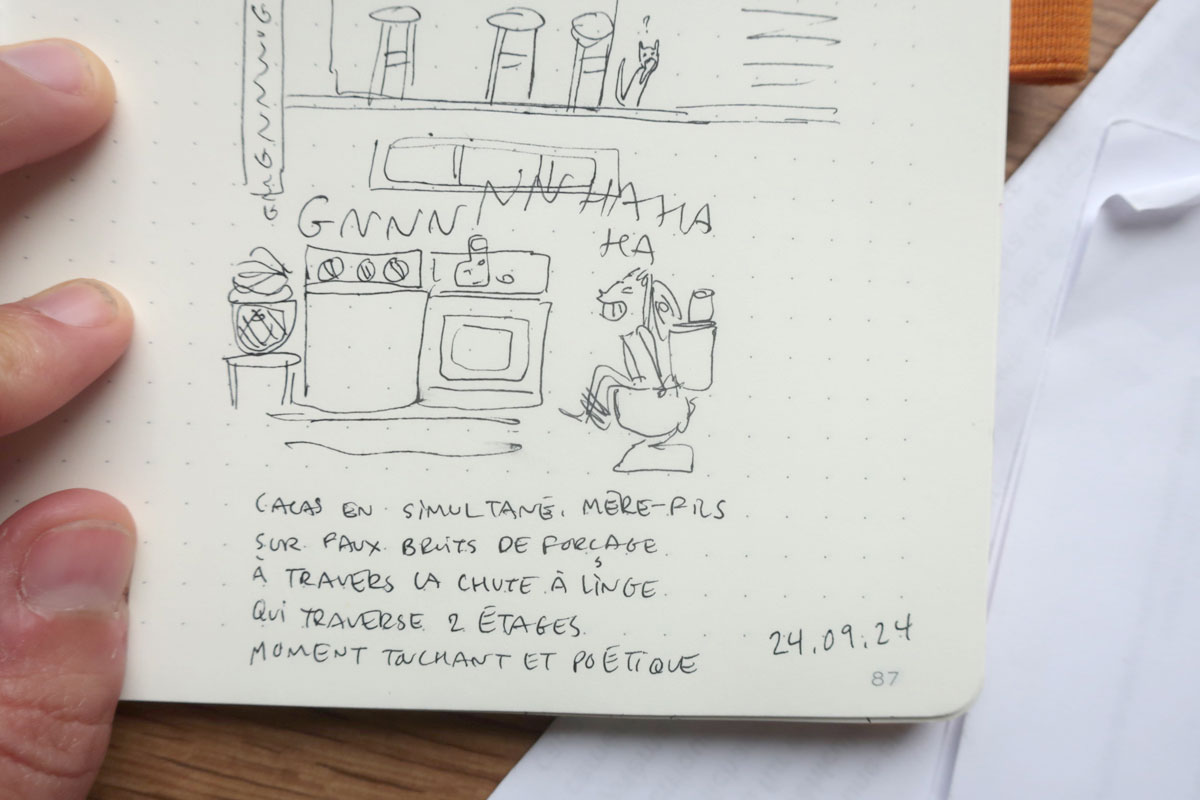 GNNNNNG
GNNNN NN HAHA
HA
?
CACAS EN SIMULTANÉ, MÈRE-FILS
SUR FAUX BRUITS DE FORÇAGE
À TRAVERS LA CHUTE À LINGE
QUI TRAVERSE 2 ÉTAGES.
MOMENT TOUCHANT ET POÉTIQUE
24.09.24
87